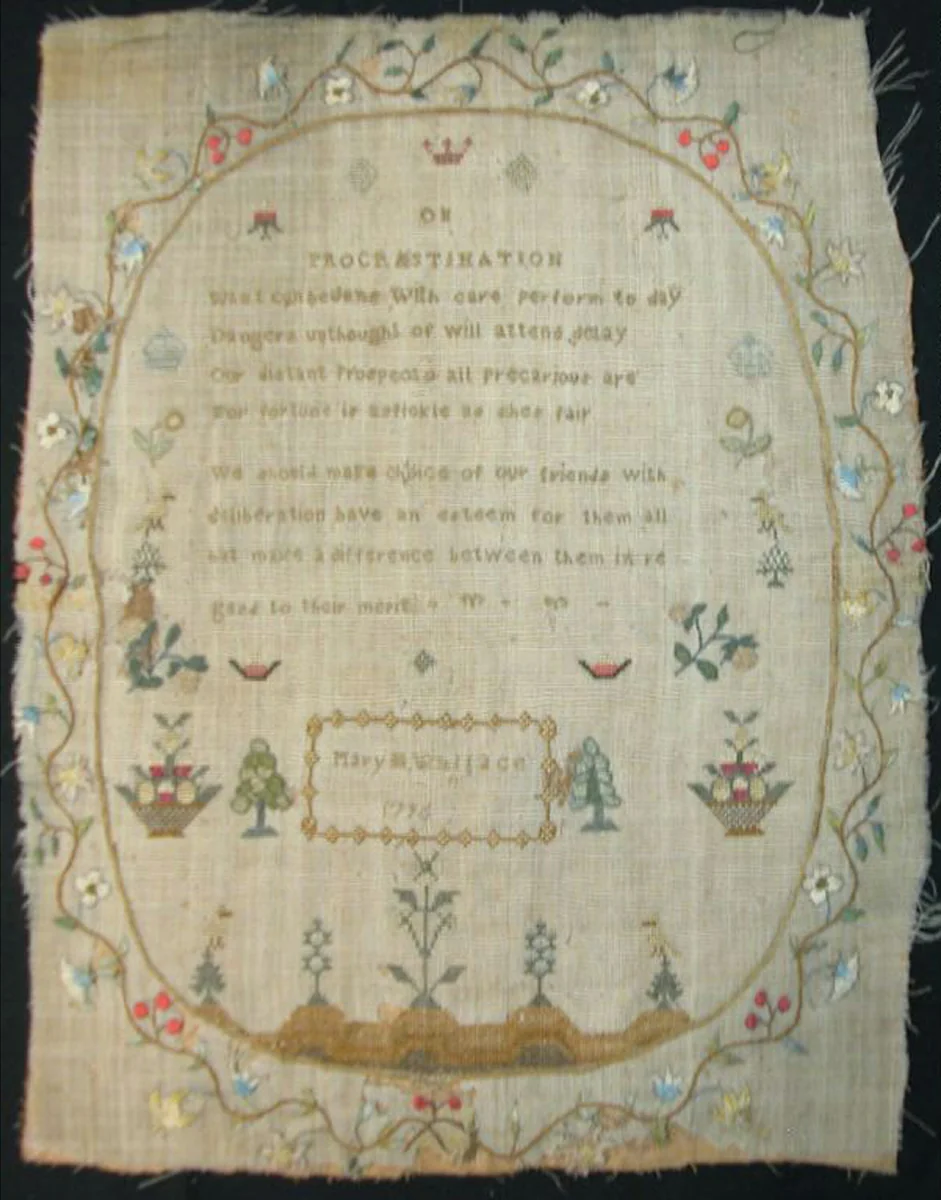 ON
PROCRASTINATION
What can be done With care perform to day
Dangers unthought of will attend delay
Our distant Prospects all precarious are
For fortune is as fickle as shee fair
We should make choice of our friends with
deliberation have an esteem for them all
but make a difference between them in re
gard to their merit
Mary Wallace